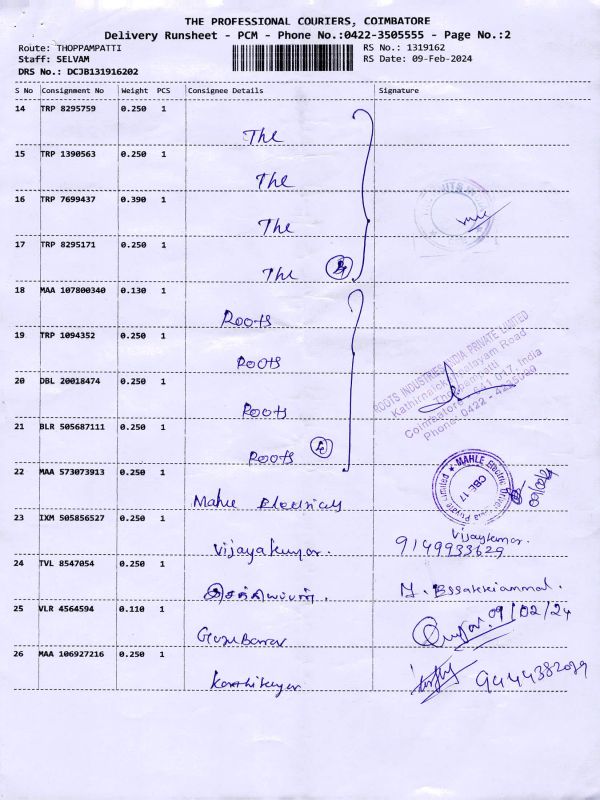 THE PROFESSIONAL COURIERS, COIMBATORE
Delivery Runsheet - PCM - Phone No.:0422-3505555 - Page No.:2
Route: THOPPAMPATTI
RS No.: 1319162
Staff: SELVAM
RS Date: 09-Feb-2024
DRS No.: DCJB131916202
S No Consignment No Weight PCS Consignee Details Signature
14 TRP 8295759 0.250 1
The
15 TRP 1390563 0.250 1
The
16 TRP 7699437 0.390 1
The
17 TRP 8295171 0.250 1
The
18 MAA 107800340 0.130 1
Roots
19 TRP 1094352 0.250 1
Roots
20 DBL 20018474 0.250 1
Roots
21 BLR 505687111 0.250 1
Roots
ROOTS INDUSTRIES INDIA PRIVATE LIMITED
Kathirnaickenpalayam Road,
Thoppampatti
Coimbatore - 641 017, India
Phone: 0422 -
22 MAA 573073913 0.250 1
Mahle Electricals
MAHLE Electric Drives India Private Limited
CBE 17
09/02/24
23 IXM 505856527 0.250 1
Vijayakumar.
Vijaykumar.
9149933629
24 TVL 8547054 0.250 1
M. Essakkiammal.
25 VLR 4564594 0.110 1
09/02/24
26 MAA 106927216 0.250 1
Karthikeyan
9444382029